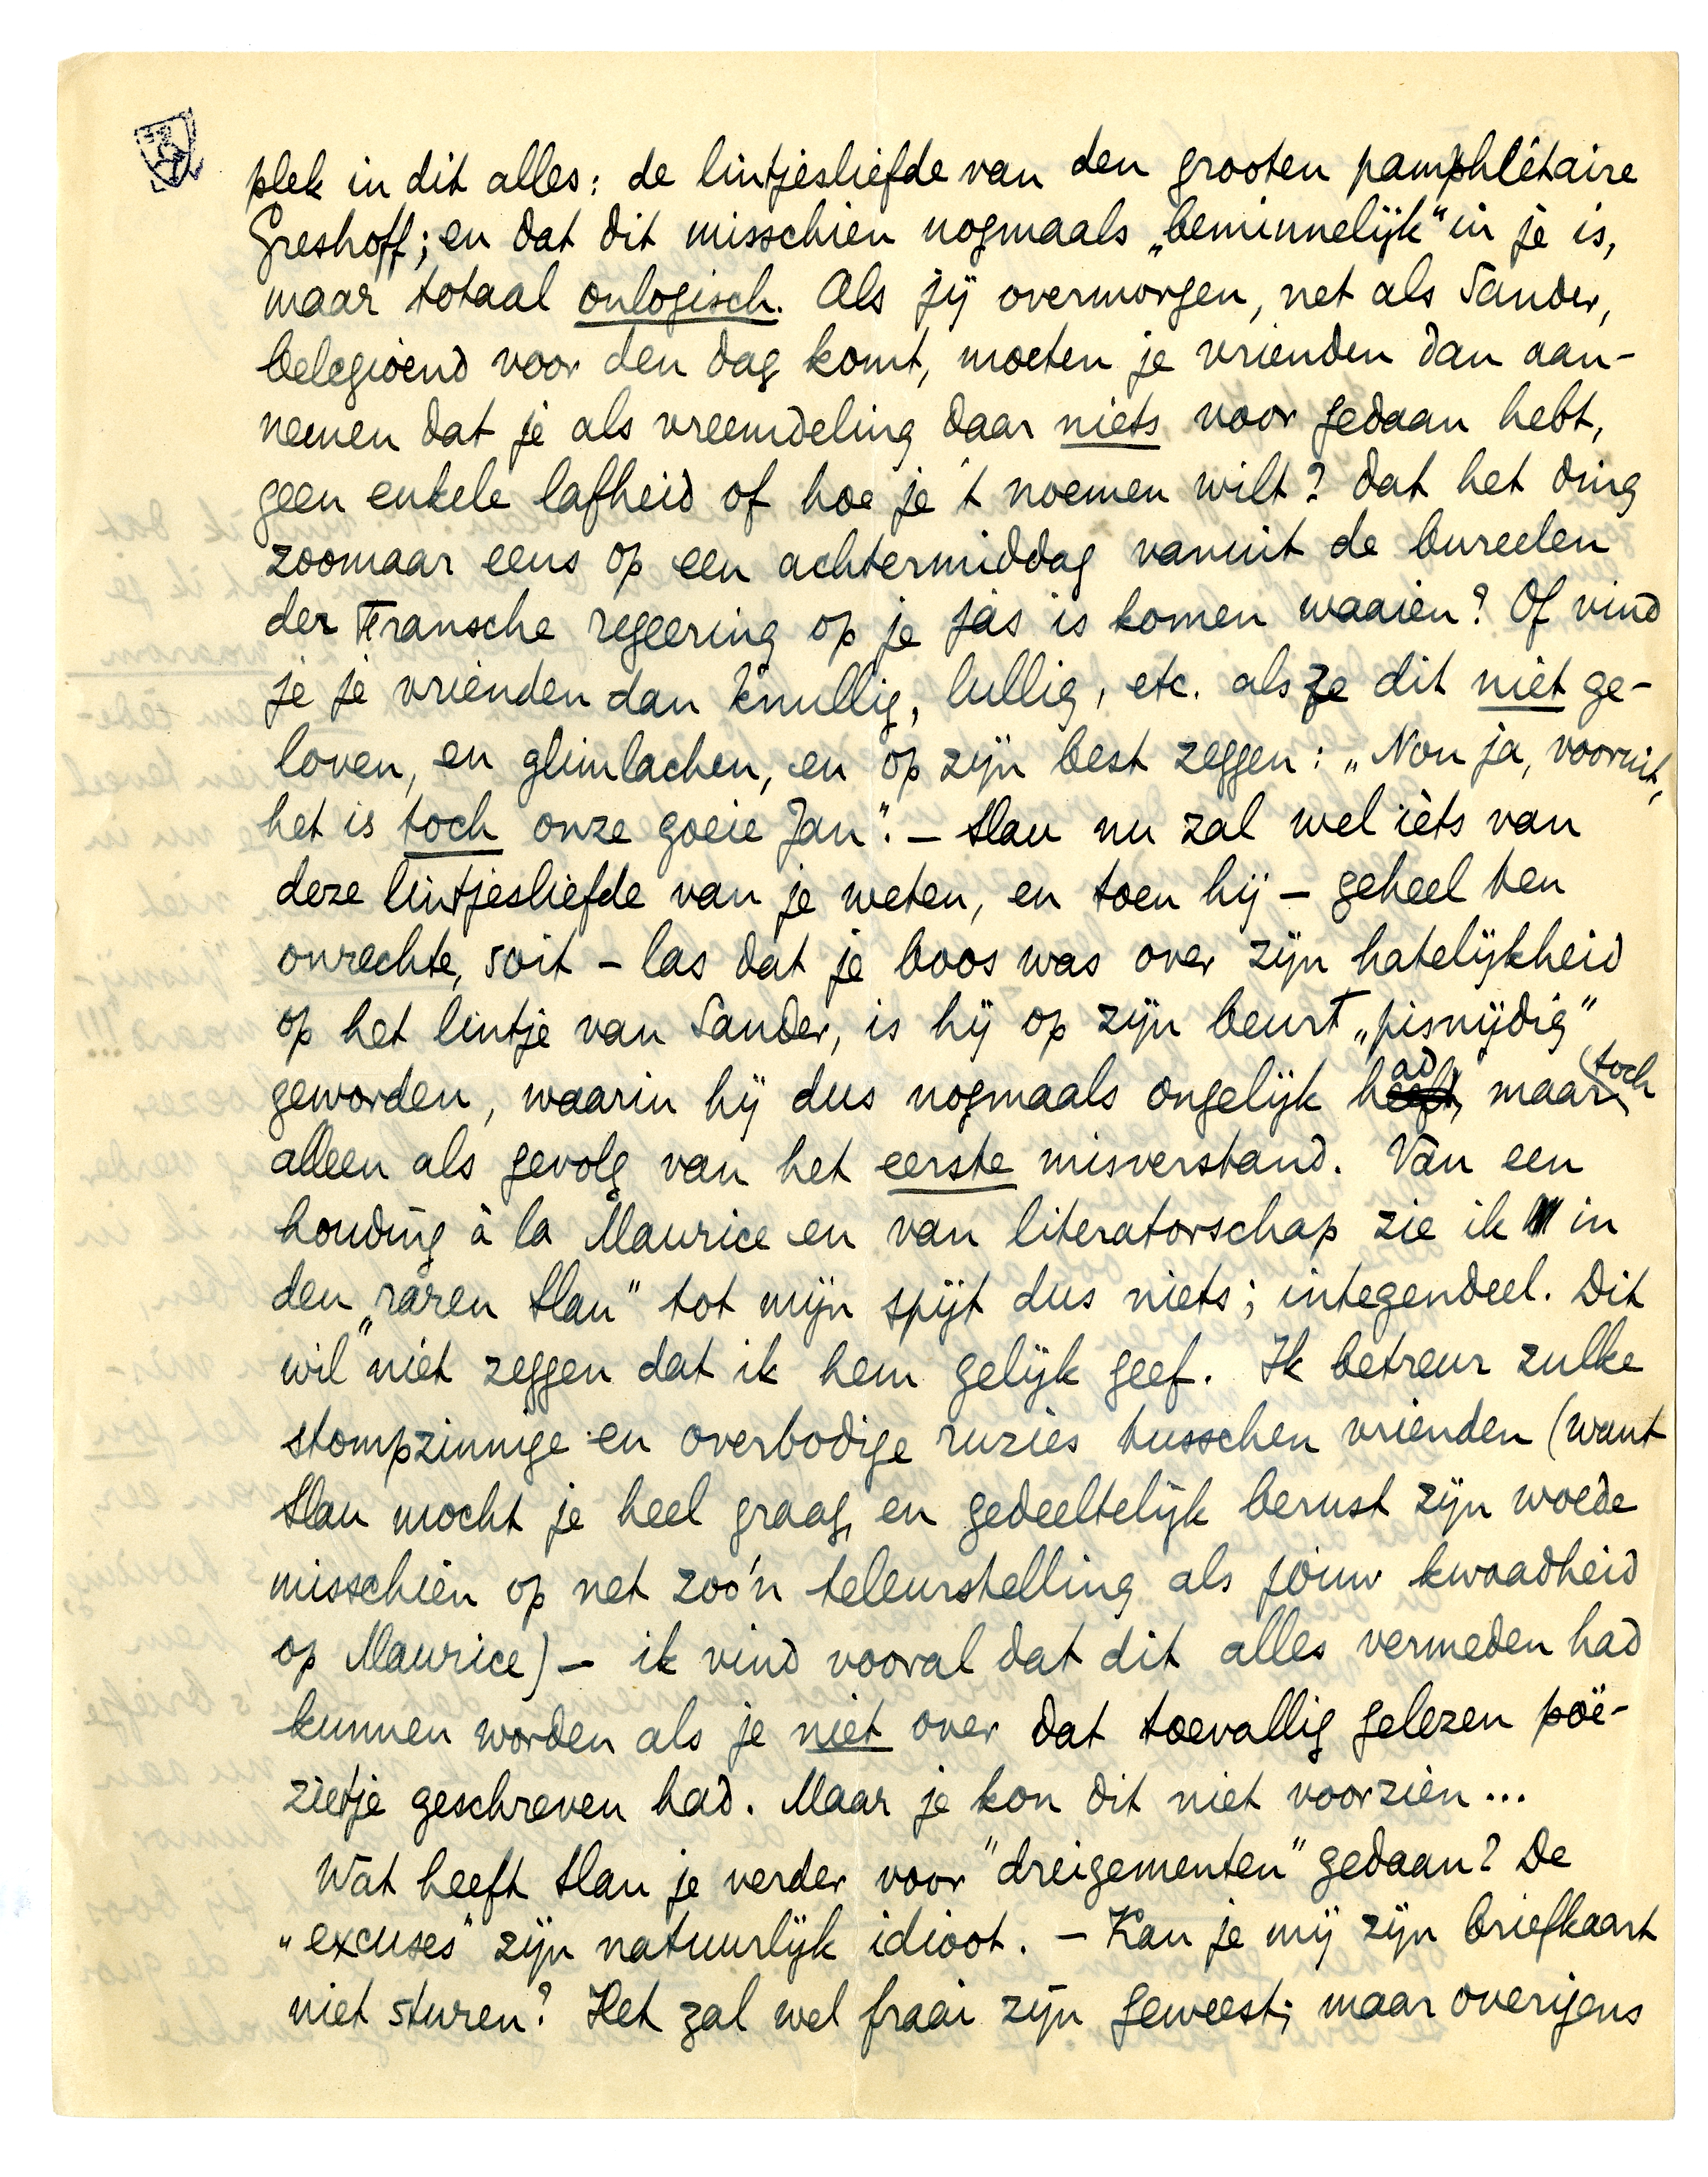 plek in dit alles: de lintjesliefde van den grooten pamphlétaire
Greshoff; en dat dit misschien nogmaals „beminnelijk" in je is,
maar totaal onlogisch. Als jij overmorgen, net als Sander,
belegioend voor den dag komt, moeten je vrienden dan aan-
nemen dat je als vreemdeling daar niets voor gedaan hebt,
geen enkele lafheid of hoe je 't noemen wilt? dat het ding
zoomaar eens op een achtermiddag vanuit de bureelen
der Fransche regeering op je jas is komen waaien? Of vind
je je vrienden dan knullig, lullig, etc. als ze dit niet ge-
loven, en glimlachen, en op zijn best zeggen: „Nou ja, vooruit,
het is toch onze goeie Jan". – Slau nu zal wel iets van
deze lintjesliefde van je weten, en toen hij – geheel ten
onrechte, soit – las dat je boos was over zijn hatelijkheid
op het lintje van Sander, is hij op zijn beurt „pisnijdig"
geworden, waarin hij dus nogmaals ongelijk had, maar toch
alleen als gevolg van het eerste misverstand. Van een
houding à la Maurice en van literatorschap zie ik in
den „raren Slau" tot mijn spijt dus niets; integendeel. Dit
wil niet zeggen dat ik hem gelijk geef. Ik betreur zulke
stompzinnige en overbodige ruzies tusschen vrienden (want
Slau mocht je heel graag, en gedeeltelijk berust zijn woede
misschien op net zoo'n teleurstelling als jouw kwaadheid
op Maurice) – ik vind vooral dat dit alles vermeden had
kunnen worden als je niet over dat toevallig gelezen poë-
zietje geschreven had. Maar je kon dit niet voorzien...
Wat heeft Slau je verder voor "dreigementen" gedaan? De
„excuses" zijn natuurlijk idioot. – Kan je mij zijn briefkaart
niet sturen? Het zal wel fraai zijn geweest; maar overigens